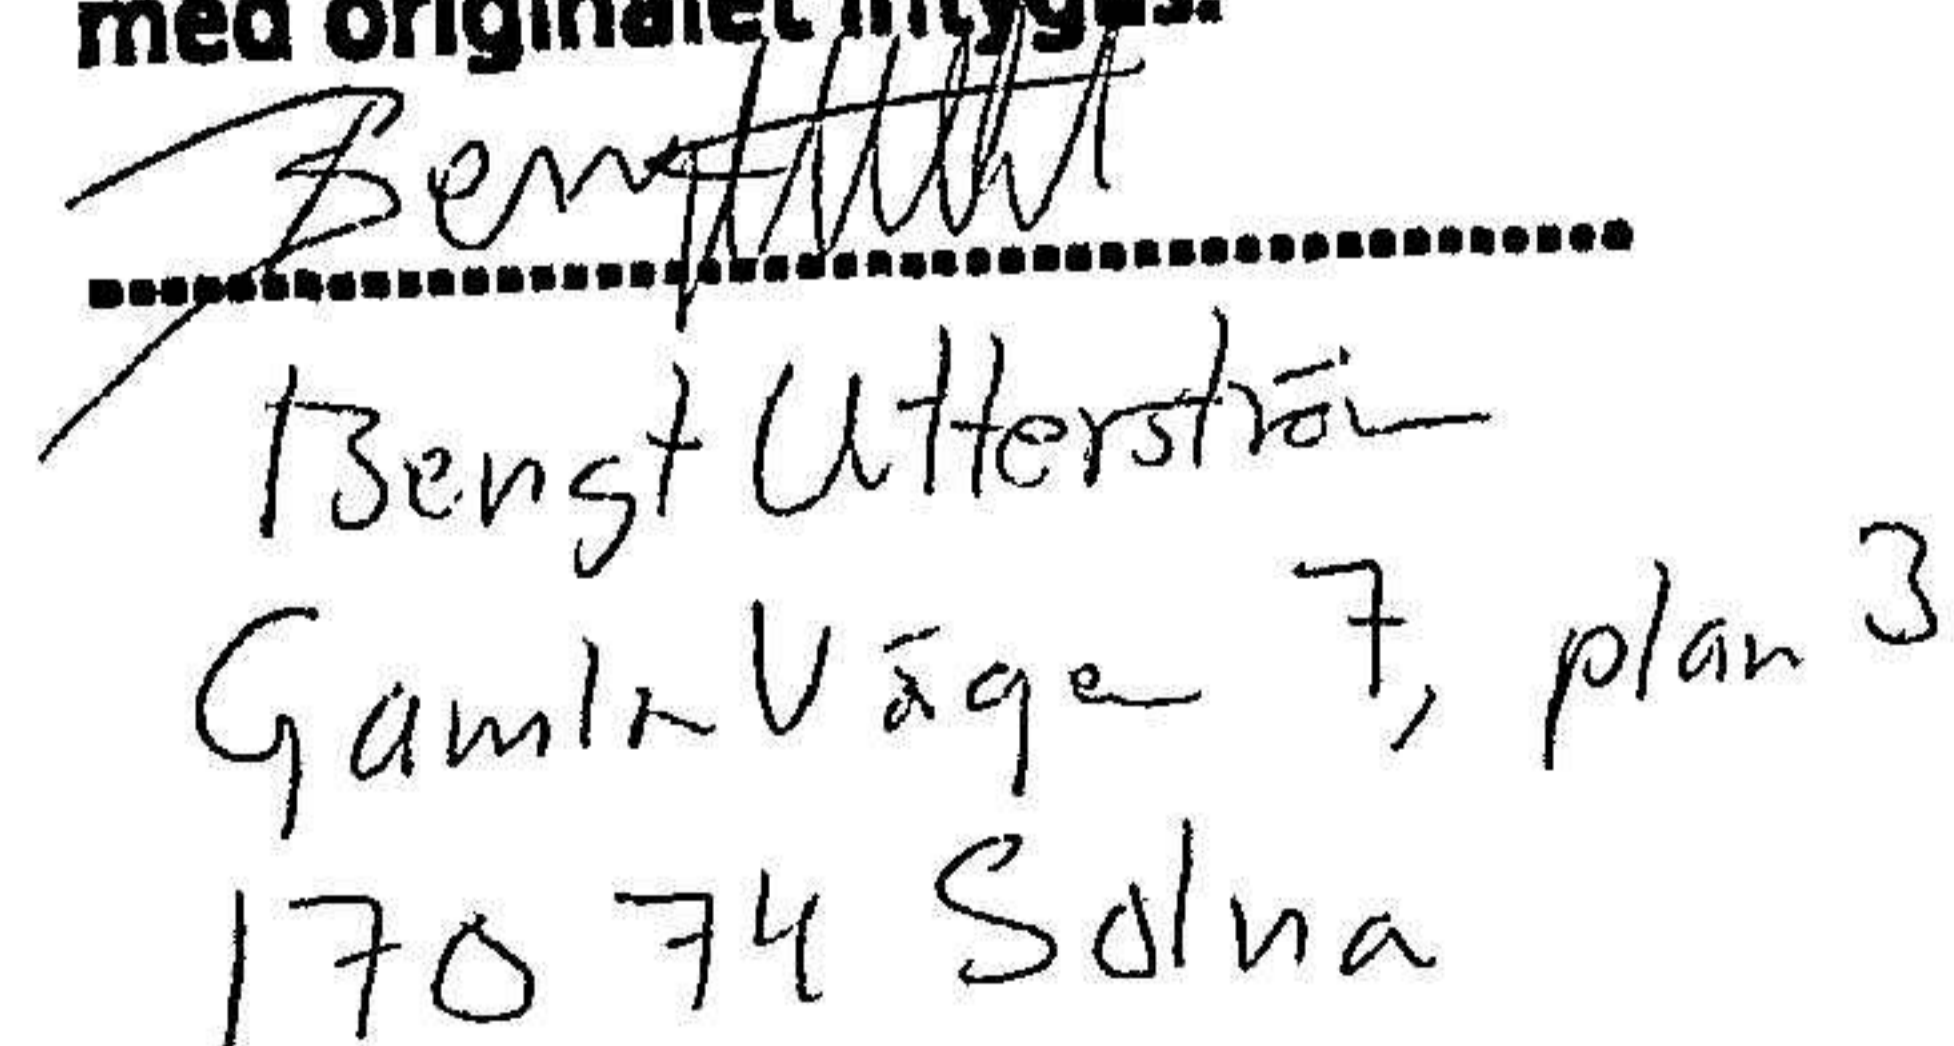 med originalet intygas.
Bengt Utterström
Gamla Vägen 7, plan 3
170 74 Solna